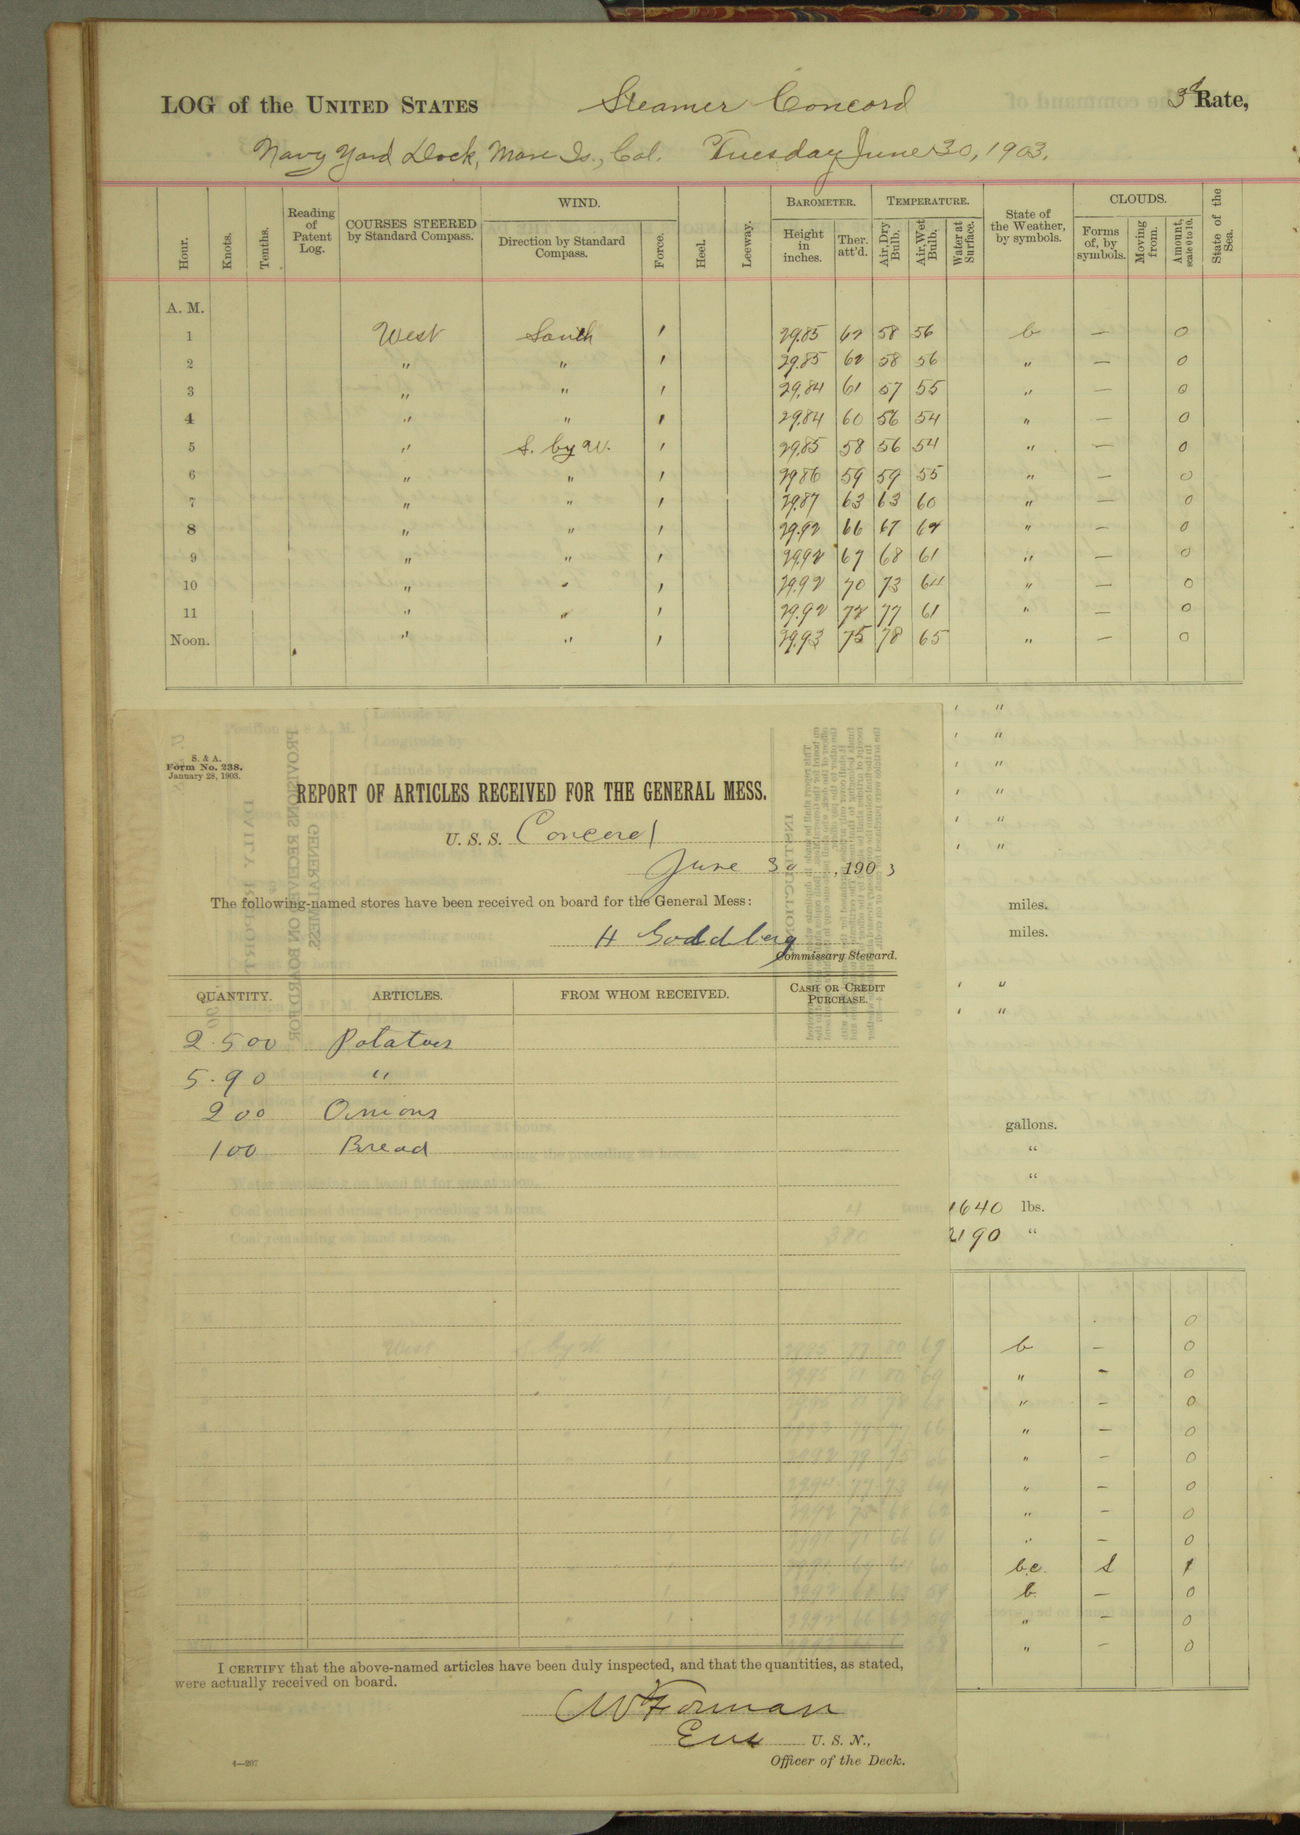 LOG of the UNITED STATES Steamer Concord 3d Rate,
Navy Yard Dock, Mare Is., Cal. Tuesday June 30, 1903.
Hour. Knots. Tenths. Reading of Patent Log. COURSES STEERED by Standard Compass. WIND. Direction by Standard Compass. Force. Heel. Leeway. BAROMETER. Height in inches. Ther. att'd. TEMPERATURE. Air, Dry Bulb. Air, Wet Bulb. Water at Surface. State of the Weather, by symbols. CLOUDS. Forms of, by symbols. Moving from. Amount, scale 0 to 10. State of the Sea.
A. M.
1 West South 1 29.85 62 58 56 b — 0
2 " " 1 29.85 62 58 56 " — 0
3 " " 1 29.84 61 57 55 " — 0
4 " " 1 29.84 60 56 54 " — 0
5 " S. by W. 1 29.85 58 56 54 " — 0
6 " " 1 29.86 59 59 55 " — 0
7 " " 1 29.87 63 63 60 " — 0
8 " " 1 29.92 66 67 62 " — 0
9 " " 1 29.92 67 68 61 " — 0
10 " " 1 29.92 70 73 64 " — 0
11 " " 1 29.92 72 77 61 " — 0
Noon. " " 1 29.93 75 78 65 " — 0
S. & A.
Form No. 238.
January 28, 1903.
REPORT OF ARTICLES RECEIVED FOR THE GENERAL MESS.
U. S. S. Concord
June 30, 1903
The following-named stores have been received on board for the General Mess:
H Goldberg
Commissary Steward.
QUANTITY. ARTICLES. FROM WHOM RECEIVED. CASH OR CREDIT PURCHASE.
2.500 Potatoes
5.90 "
200 Onions
100 Bread
I CERTIFY that the above-named articles have been duly inspected, and that the quantities, as stated,
were actually received on board.
CW Forman
Ens U. S. N.,
Officer of the Deck.
4—207
' "
' "
' "
' "
' "
' "
miles.
miles.
' "
' "
gallons.
"
"
1640 lbs.
2190 "
0
b — 0
" — 0
" — 0
" — 0
" — 0
" — 0
" — 0
" — 0
b.c. S 1
b. — 0
" — 0
" — 0